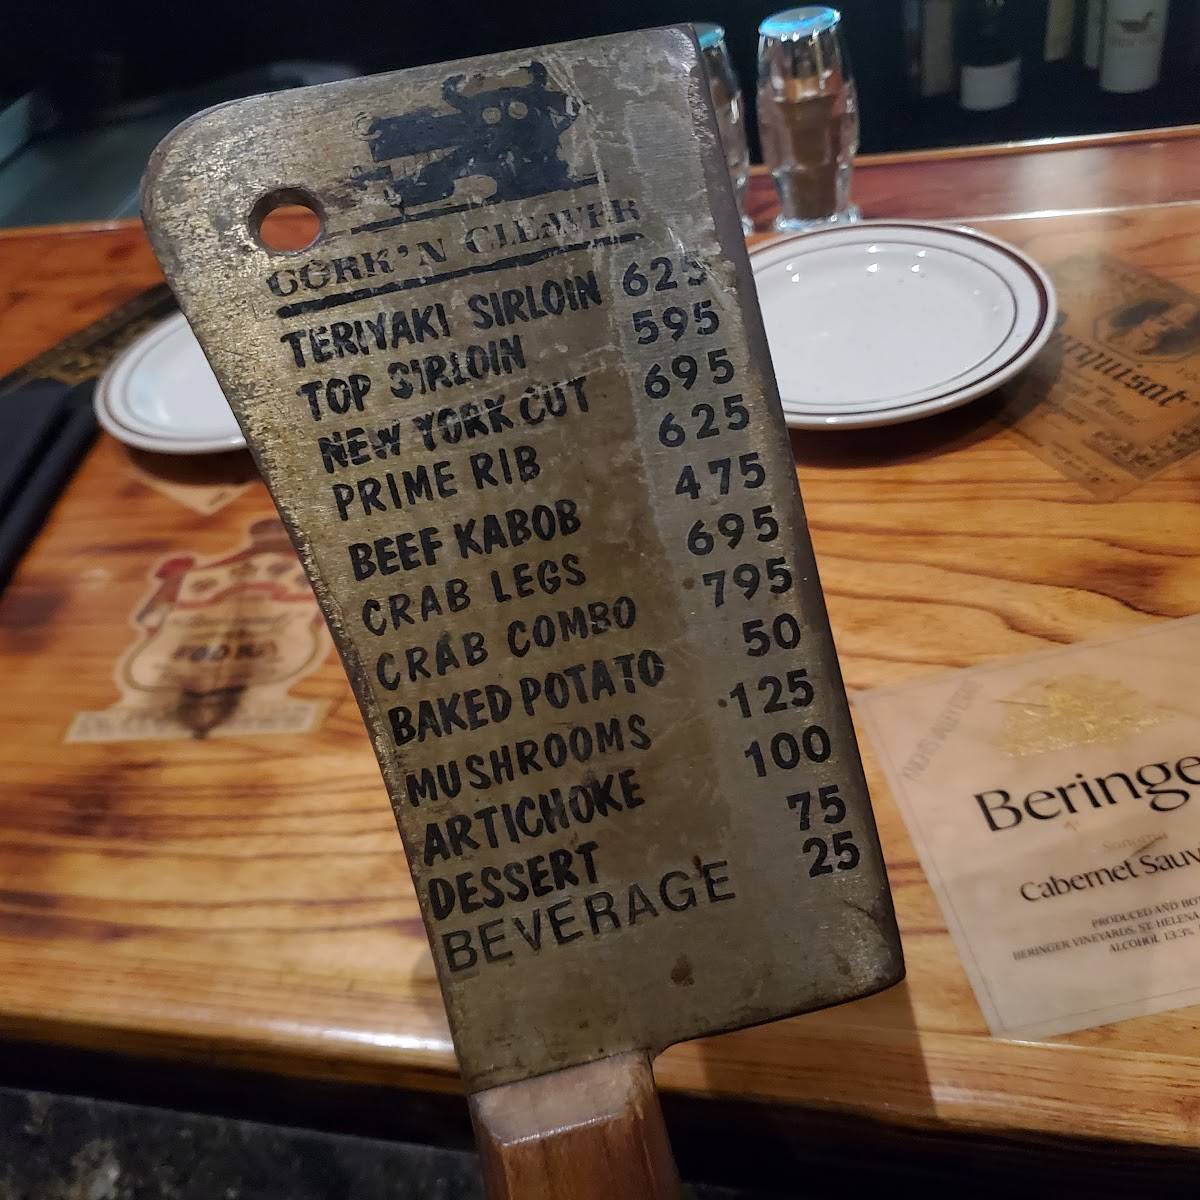 CORK'N CLEAVER
TERIYAKI SIRLOIN 625
TOP SIRLOIN 595
NEW YORK CUT 695
PRIME RIB 625
BEEF KABOB 475
CRAB LEGS 695
CRAB COMBO 795
BAKED POTATO 50
MUSHROOMS 125
ARTICHOKE 100
DESSERT 75
BEVERAGE 25
Beringe
Cabernet Sauv
PRODUCED AND BO
BERINGER VINEYARDS, ST. HELEN
ALCOHOL 13.3%